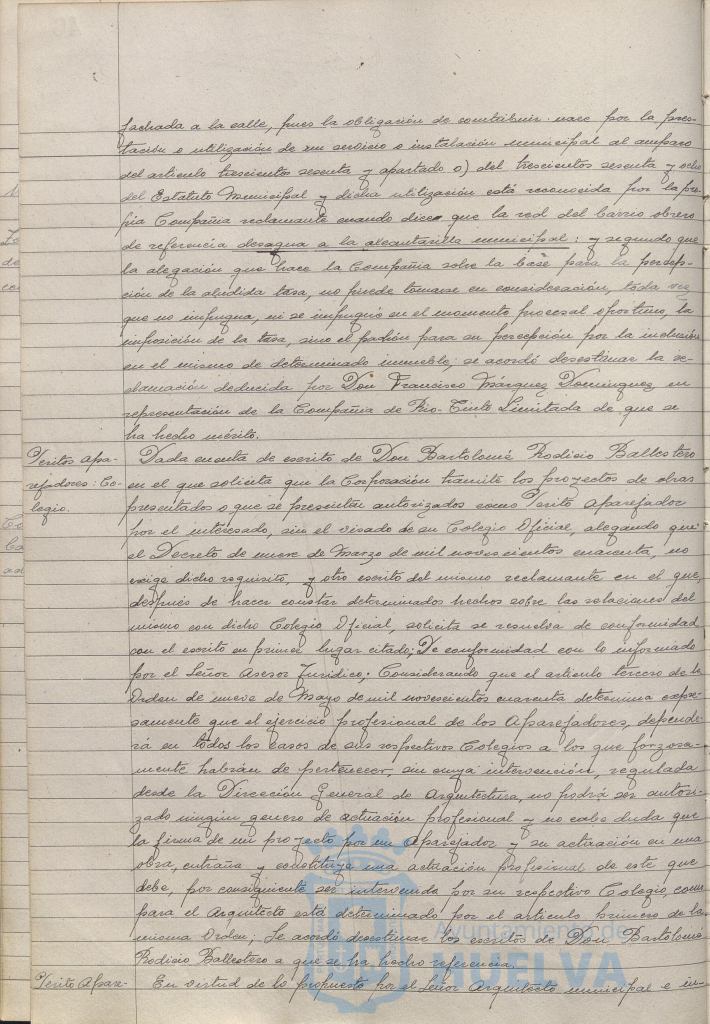 fachada a la calle, pues la obligación de contribuir nace por la pres-
tación o utilización de un servicio o instalación municipal al amparo
del articulo trescientos sesenta y apartado o) del trescientos sesenta y ocho
del Estatuto Municipal y dicha utilización está reconocida por la pro-
pia Compañia reclamante cuando dice que la red del barrio obrero
de referencia desagua a la alcantarilla municipal: y segundo que
la alegación que hace la Compañia sobre la base para la percep-
ción de la aludida tasa, no puede tomarse en consideración, toda vez
que no impugna, ni se impugnó en el momento procesal oportuno, la
imposición de la tasa, sino el padrón para su percepción por la inclusión
en el mismo de determinado inmueble; se acordó desestimar la re-
clamación deducida por Don Francisco Márquez Dominguez en
representación de la Compañia de Rio-Tinto Limitada de que se
ha hecho mérito.
Peritos Apa-
rejadores: Co-
legio.
Dada cuenta de escrito de Don Bartolomé Rodicio Ballestero
en el que solicita que la Corporación tramite los proyectos de obras
presentados o que se presenten autorizados como Perito Aparejador
por el interesado, sin el visado de su Colegio Oficial, alegando que
el Decreto de nueve de Marzo de mil novecientos cuarenta, no
exige dicho requisito, y otro escrito del mismo reclamante en el que,
después de hacer constar determinados hechos sobre las relaciones del
mismo con dicho Colegio Oficial, solicita se resuelva de conformidad
con el escrito en primer lugar citado; De conformidad con lo informado
por el Señor Asesor Juridico; Considerando que el articulo tercero de la
Orden de nueve de Mayo de mil novecientos cuarenta determina expre-
samente que el ejercicio profesional de los Aparejadores, depende-
rá en todos los casos de sus respectivos Colegios a los que forzosa-
mente habrán de pertenecer, sin cuya intervención, regulada
desde la Dirección General de Arquitectura, no podrá ser autori-
zado ningún genero de actuación profesional y no cabe duda que
la firma de un proyecto por un Aparejador y su actuación en una
obra, entraña y constituye una actuación profesional de este que
debe, por consiguiente ser intervenida por su respectivo Colegio, como
para el Arquitecto está determinado por el articulo primero de la
misma Orden; Se acordó desestimar los escritos de Don Bartolomé
Rodicio Ballestero a que se ha hecho referencia.
Perito Apare-
En virtud de lo propuesto por el Señor Arquitecto municipal e in-
Ayuntamiento de
HUELVA